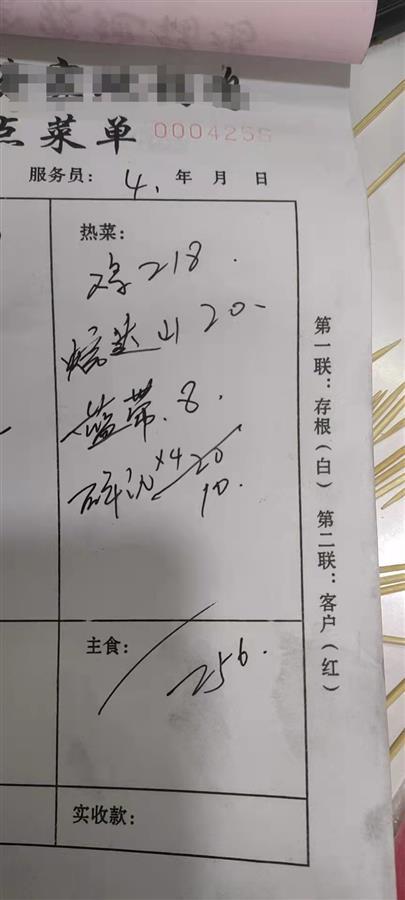 点菜单 0004256
服务员： 4. 年 月 日
热菜：
鸡218.
20-
蓝带.8.
×4 20
10.
主食：
256.
实收款：
第一联：存根（白） 第二联：客户（红）